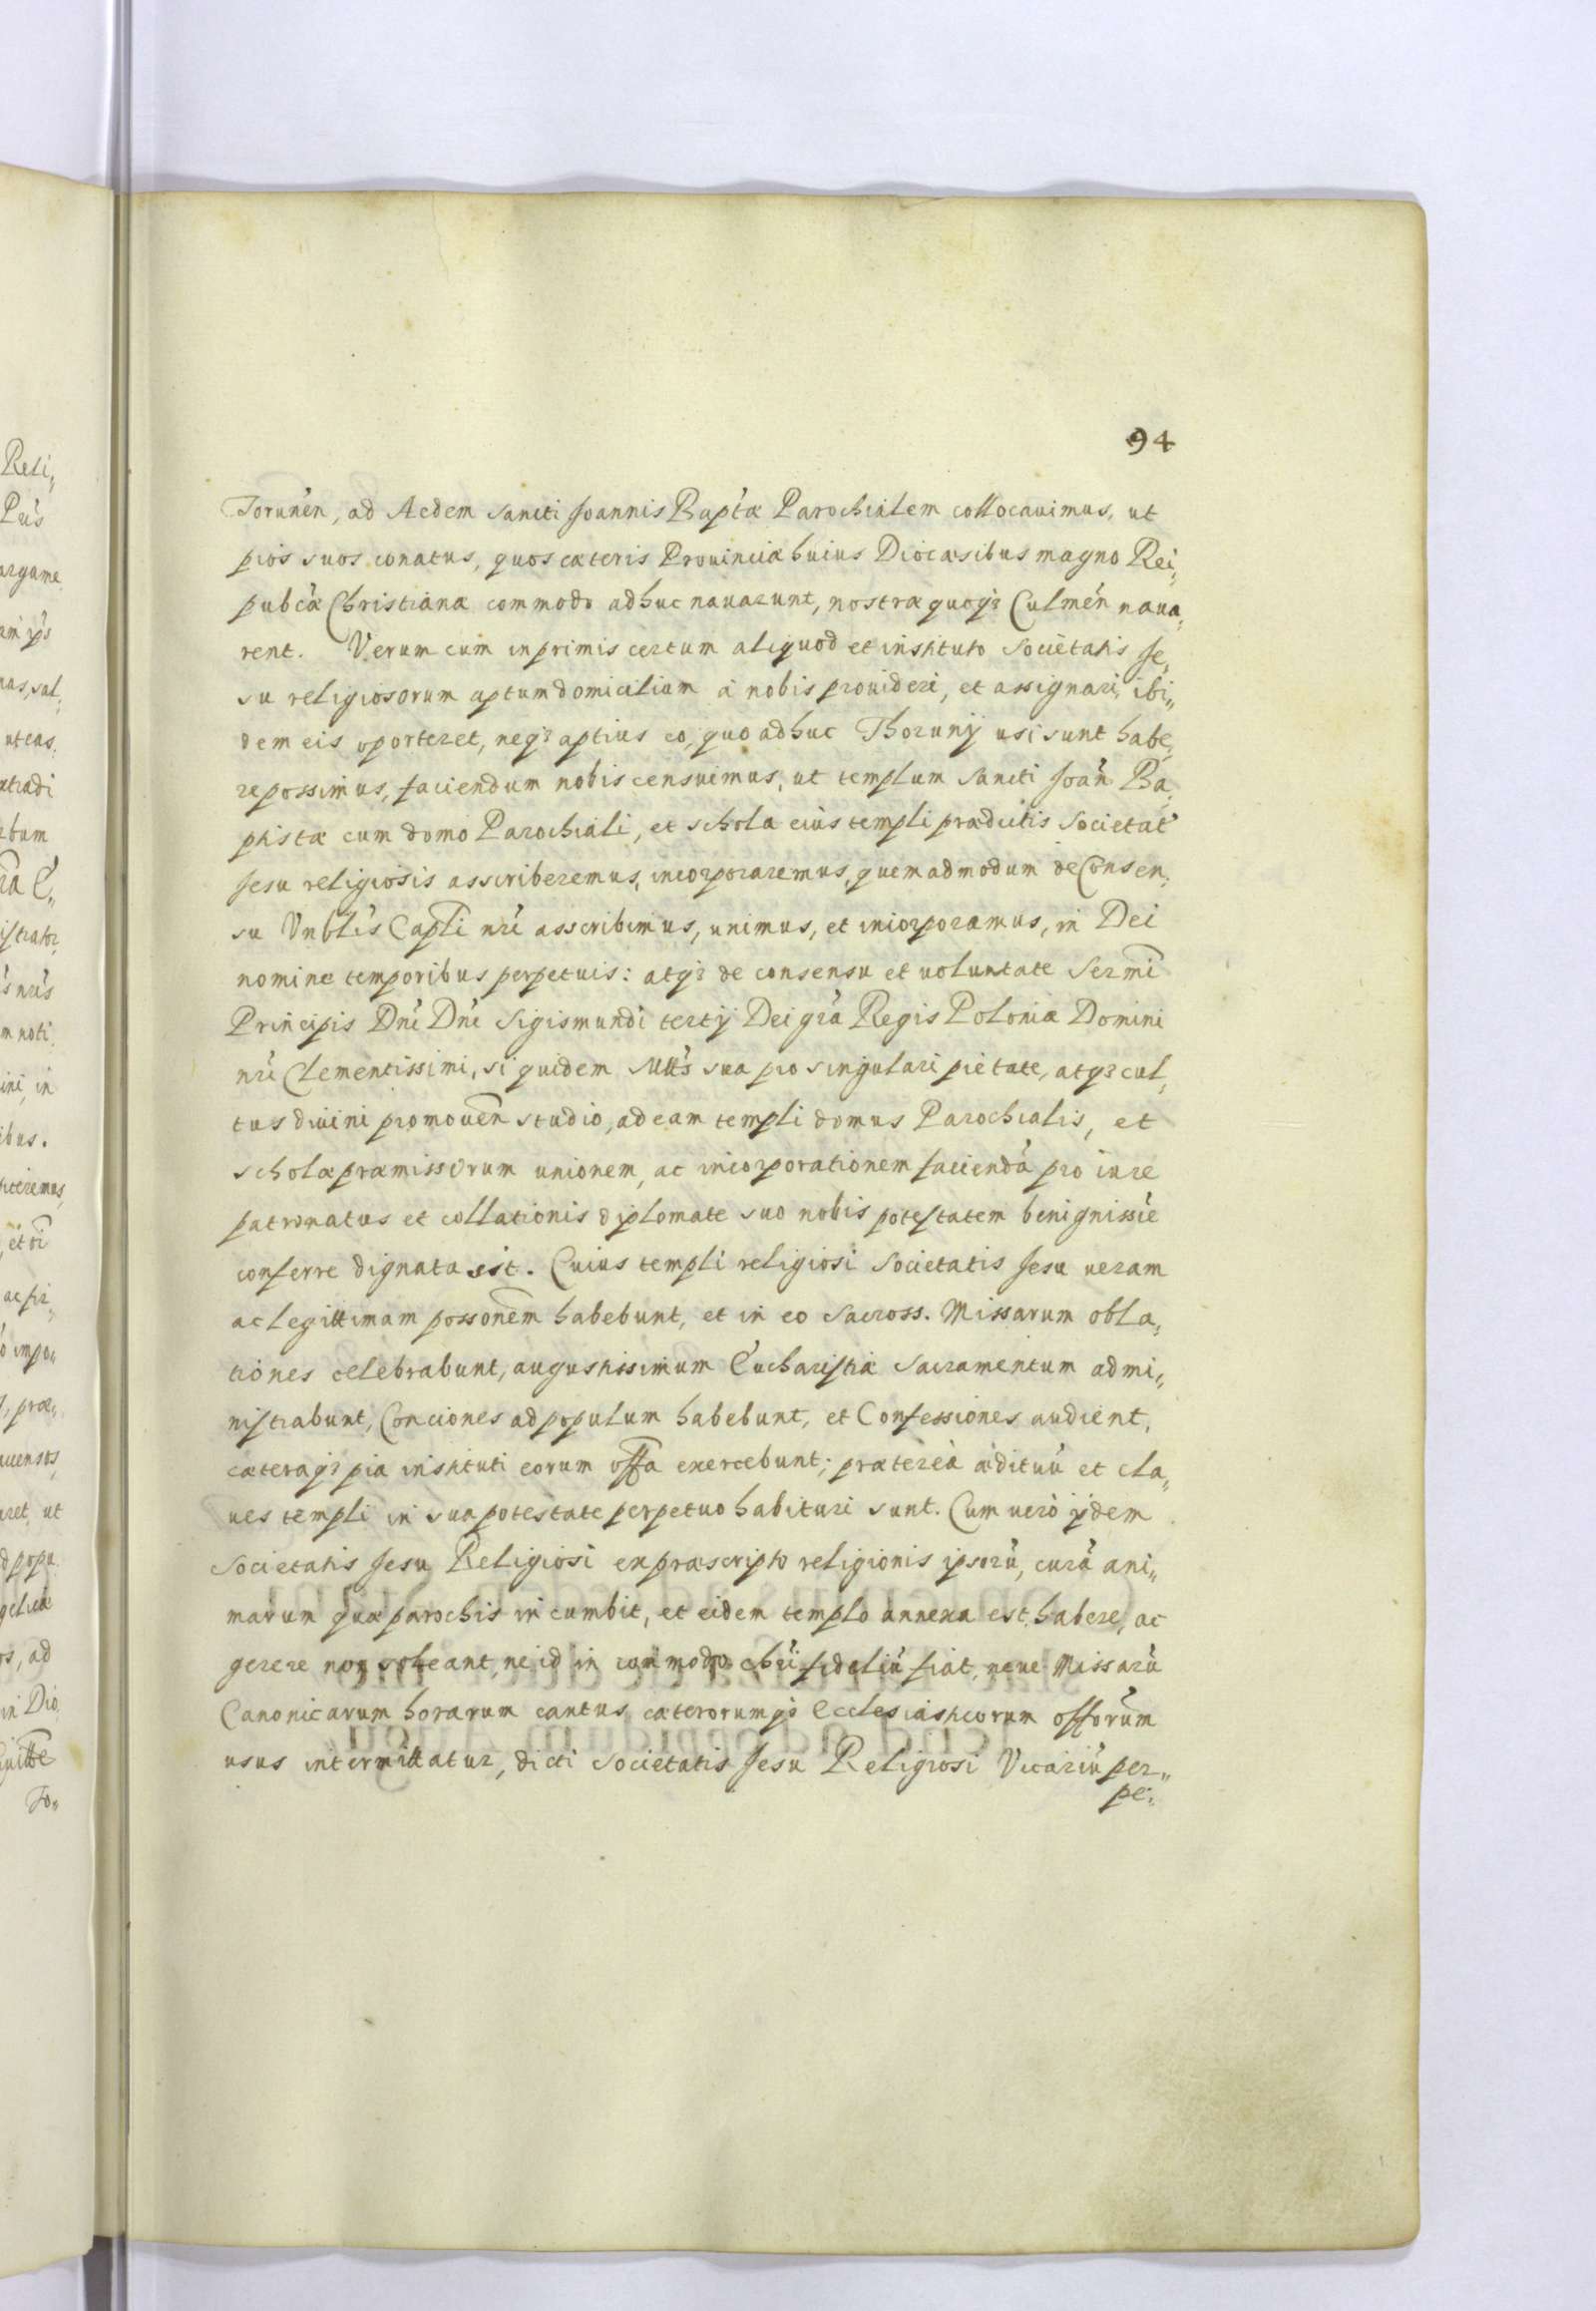 94
Torunen, ad Aedem Sancti Joannis Baptæ Parochialem collocauimus, ut
pios suos conatus, quos cæteris Prouinciæ huius Diocæsibus magno Rei„
pubcæ Christianæ commodo adhuc nauarunt, nostræ quoq3 Culmen naua„
rent. Verum cum inprimis certum aliquod et instituto Societatis Je„
su religiosorum aptum domicilium à nobis prouideri, et assignari, ibi„
dem eis oporteret, neq3 aptius eo, quo adhuc Thorunÿ usi sunt habe„
re possimus, faciendum nobis censuimus, ut templum Sancti Joan Ba„
ptistæ cum domo Parochiali, et schola eius templi prædictis Societat
Jesu religiosis asscriberemus, incorporaremus, quemadmodum de Consen„
su Vnblis Capli nri asscribimus, unimus, et incorporamus, in Dei
nomine temporibus perpetuis: atq3 de consensu et uoluntate Sermi
Principis Dni Dni Sigismundi tertÿ Dei gra Regis Poloniæ Domini
nri Clementissimi, siquidem Mtts sua pro singulari pietate, atq3 cul„
tus diuini promouen studio, ad eam templi domus Parochialis, et
scholæ præmissorum unionem, ac incorporationem faciendã pro iure
patronatus et collationis diplomate suo nobis potestatem benignissie
conferre dignata est. Cuius templi religiosi Societatis Jesu ueram
ac legittimam possonem habebunt, et in eo Sacross. Missarum obla„
tiones celebrabunt, augustissimum Eucharistiæ Sacramentum admi„
nistrabunt, Conciones ad populum habebunt, et Confessiones audient,
cæteraq3 pia instituti eorum offa exercebunt; præterea ædituũ et cla„
ues templi in sua potestate perpetuo habituri sunt. Cum uerò ÿdem
Societatis Jesu Religiosi ex præscripto religionis ipsorũ, curã ani„
marum quæ parochis incumbit, et eidem templo annexa est, habere, ac
gerere non soleant, ne id in commodo chri fideliũ fiat, neue Missarũ
Canonicarum horarum cantus cæterorumq3 Ecclesiasticorum offorum
usus intermittatur, dicti Societatis Jesu Religiosi Vicariũ per„
pe„